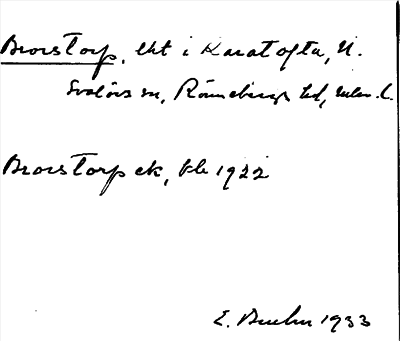 Brorstorp, lht i Karatofta, N.
Svalövs sn, Rönnebergs hd, Malm. l.
Brorstorp ek, kb 1922
E. Buehn 1933